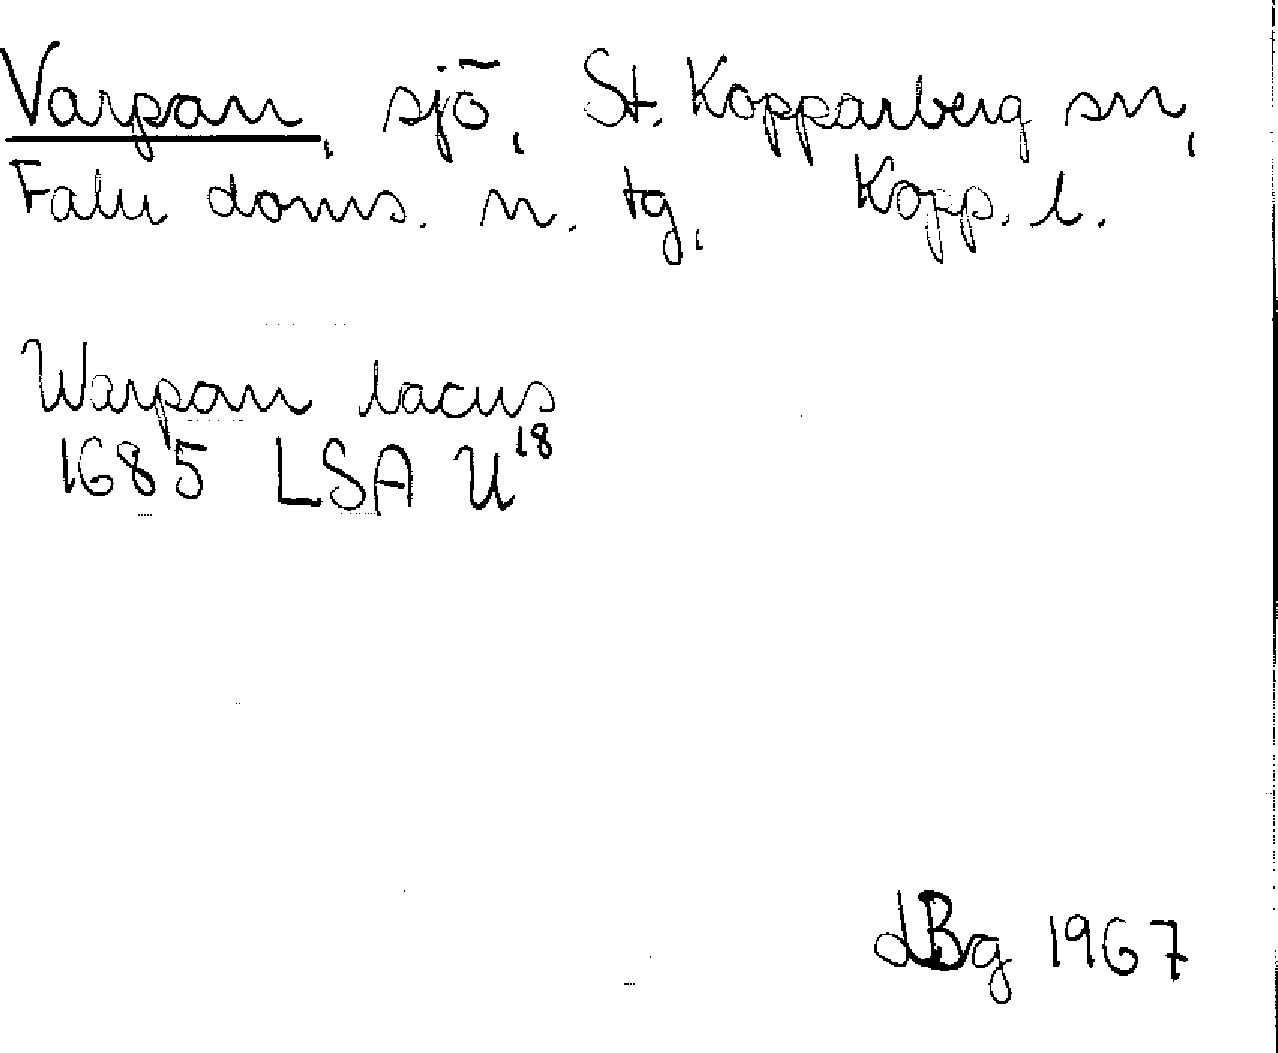 Varpan, sjö, St. Kopparberg sn,
Falu doms. n. tg, Kopp. l.
Warpan lacus
1685 LSA U18
LBg 1967